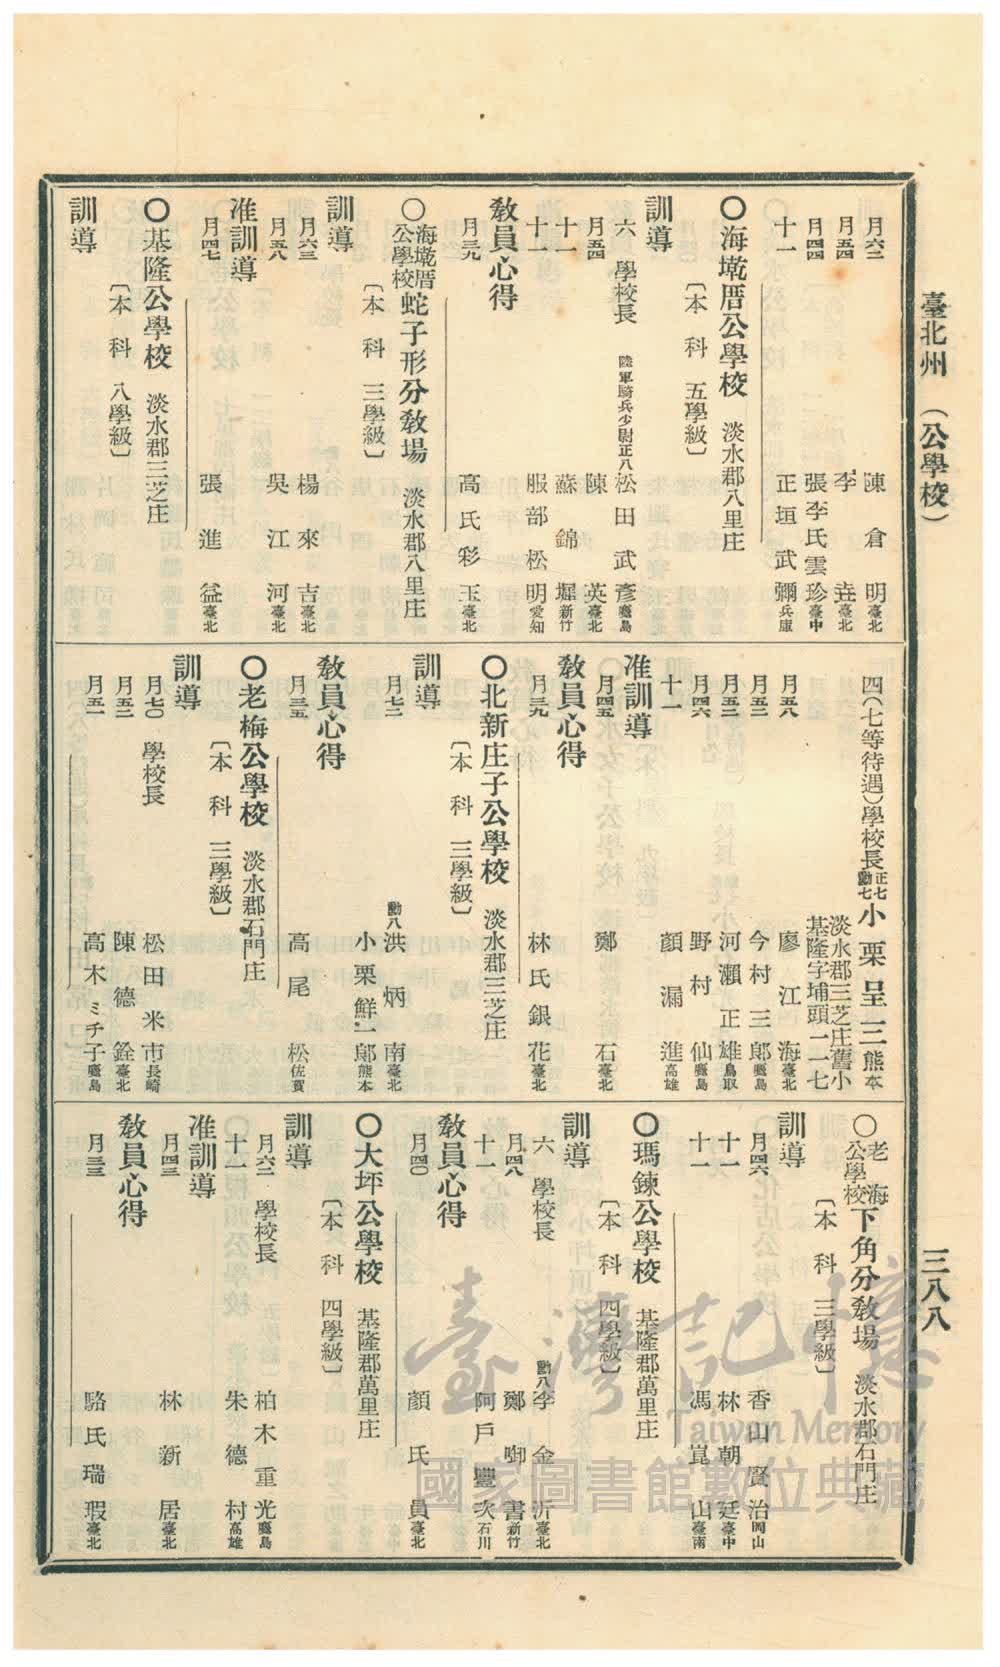 臺北州 （公學校）
三八八
月六二 陳倉明 臺北
月五四 李垚 臺北
月四四 張李氏雲珍 臺中
十一 正垣武彌 兵庫
〇海墘厝公學校 淡水郡八里庄
〔本科 五學級〕
訓導
六 學校長 陸軍騎兵少尉正八 松田武彥 鹿兒島
月五四 陳英 臺北
十一 蘇錦墀 新竹
十一 服部松明 愛知
敎員心得
月三九 高氏彩玉 臺北
〇海墘厝公學校蛇子形分敎場 淡水郡八里庄
〔本科 三學級〕
訓導
月六三 楊來吉 臺北
月五八 吳江河 臺北
准訓導
月四七 張進益 臺北
〇基隆公學校 淡水郡三芝庄
〔本科 八學級〕
訓導
四(七等待遇)學校長 正七勳七 小栗呈三 熊本
淡水郡三芝庄舊小基隆字埔頭一一七
月五八 廖江海 臺北
月五二 今村三郞 鹿兒島
月五二 河瀨正雄 鳥取
月四六 野村仙 鹿兒島
十一 顏漏進 高雄
准訓導
月四五 鄭石 臺北
敎員心得
月三九 林氏銀花 臺北
〇北新庄子公學校 淡水郡三芝庄
〔本科 三學級〕
訓導
月七二 勳八 洪炳南 臺北
小栗鮮一郞 熊本
敎員心得
月三五 高尾松 佐賀
〇老梅公學校 淡水郡石門庄
〔本科 三學級〕
訓導
月七〇 學校長 松田米市 長崎
月五二 陳德銓 臺北
月五一 高木ミチ子 鹿兒島
〇老海公學校下角分敎場 淡水郡石門庄
〔本科 三學級〕
訓導
月四六 香山賢治 岡山
十一 林朝廷 臺中
十一 馮崑山 臺南
〇瑪鍊公學校 基隆郡萬里庄
〔本科 四學級〕
訓導
六 學校長 勳八 李金沂 臺北
月四八 鄭啣書 新竹
十一 阿戶豐次 石川
敎員心得
月四〇 顏氏員 臺北
〇大坪公學校 基隆郡萬里庄
〔本科 四學級〕
訓導
月六二 學校長 柏木重光 鹿兒島
十一 朱德村 高雄
准訓導
月四三 林新居 臺北
敎員心得
月三三 駱氏瑞瑕 臺北
臺灣記憶
Taiwan Memory
國家圖書館數位典藏